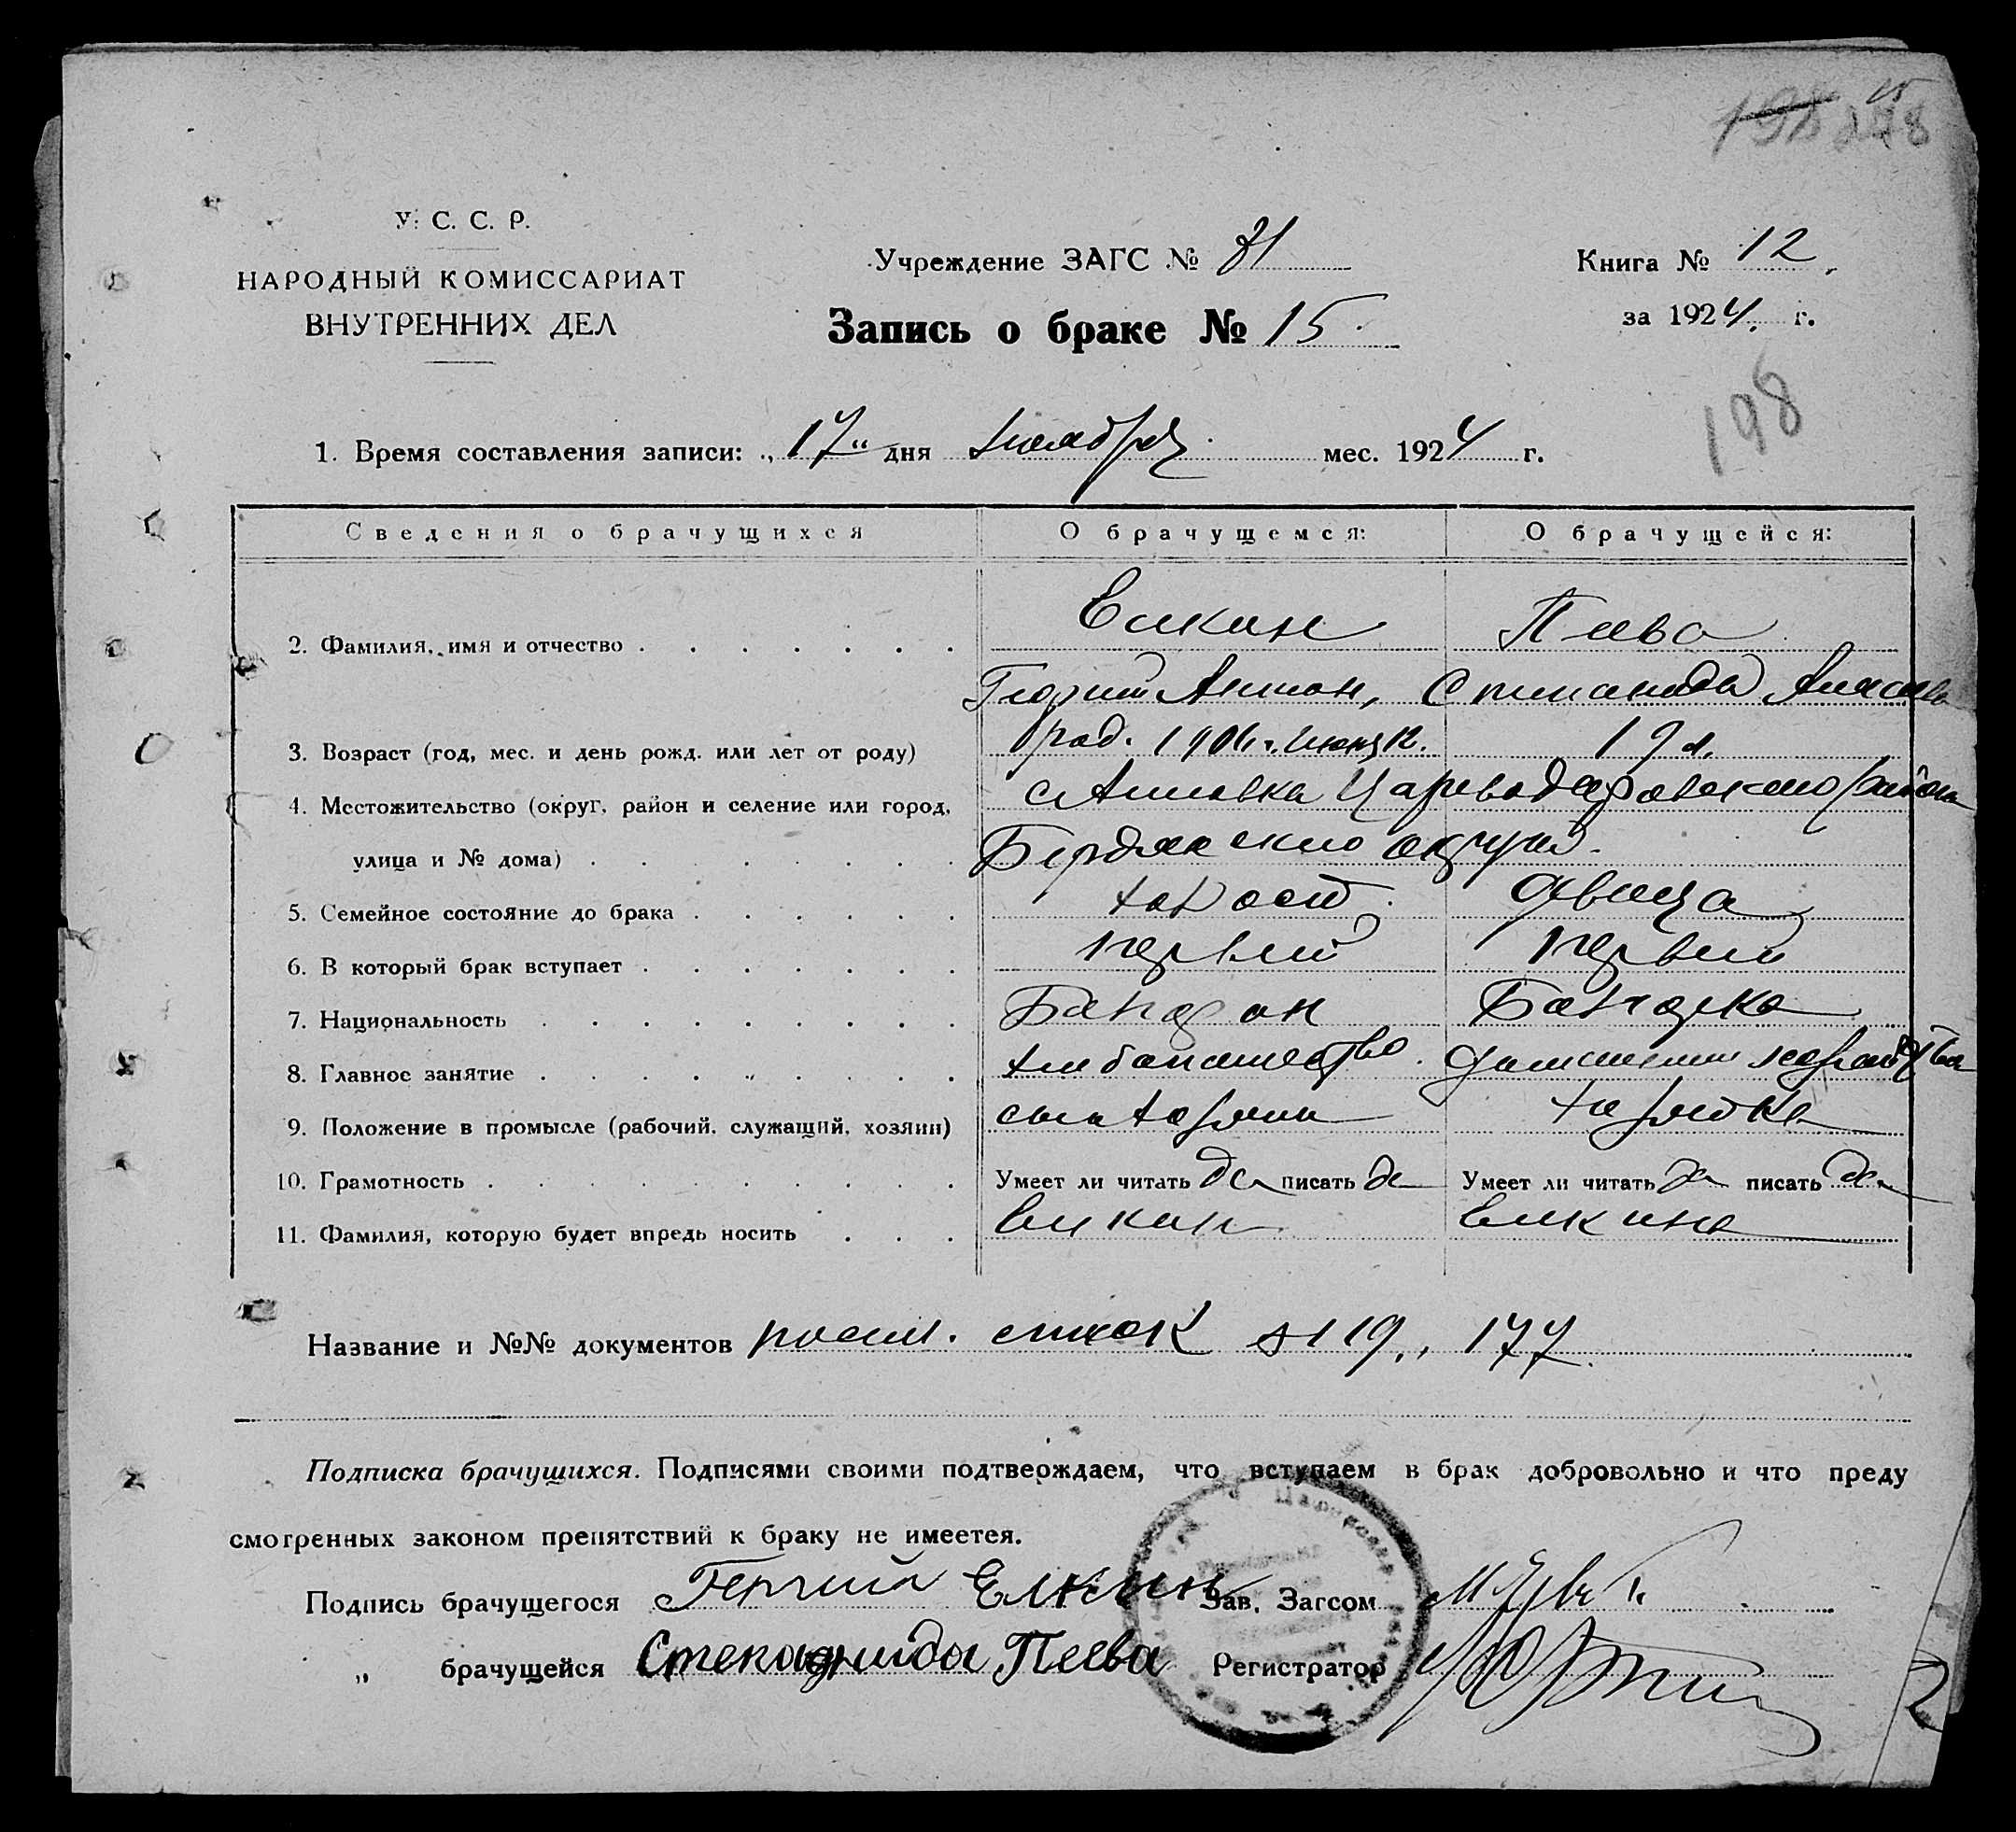 198 278
15
У. С. С. Р.
НАРОДНЫЙ КОМИССАРИАТ
ВНУТРЕННИХ ДЕЛ
Учреждение ЗАГС №
Книга № 12.
за 1924. г.
Запись о браке № 15.
198
1. Время составления записи: „17“ дня ноября мес. 1924 г.
Сведения о брачущихся О брачущемся: О брачущейся:
2. Фамилия, имя и отчество Елкин Пеева
Георгий Антон, Степанида
3. Возраст (год, мес. и день рожд. или лет от роду) рад. 1906 г. июня 12. 19 л.
4. Местожительство (округ, район и селение или город, района
улица и № дома) Бердянского округа.
5. Семейное состояние до брака холост. девица
6. В который брак вступает первый первый
7. Национальность Болгарин Болгарка
8. Главное занятие хлебопашество. домашнее хозяйство
9. Положение в промысле (рабочий, служащий, хозяин) сын хозяина
10. Грамотность Умеет ли читать да писать да Умеет ли читать да писать да
11. Фамилия, которую будет впредь носить Елкин Елкина
Название и №№ документов список 119., 177.
Подписка брачущихся. Подписями своими подтверждаем, что вступаем в брак добровольно и что преду
смотренных законом препятствий к браку не имеется.
Подпись брачущегося Елкин Зав. Загсом
„ брачущейся Пеева Регистратор
2